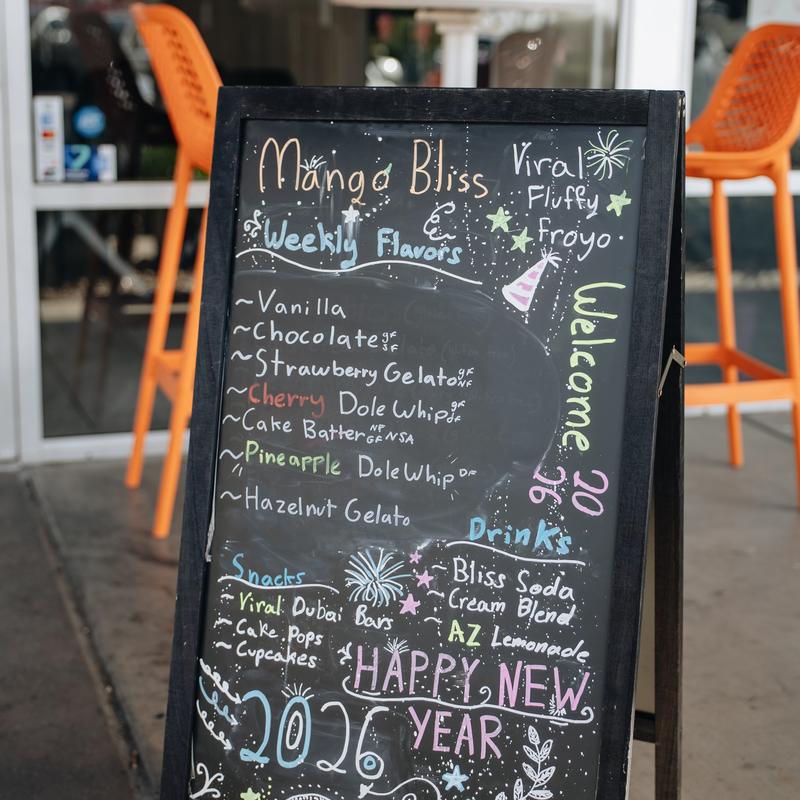 Mango Bliss
Viral
Fluffy
froyo.
Weekly Flavors
~Vanilla
~Chocolate GF SF
~Strawberry Gelato GF NF
~Cherry Dole Whip GF DF
~Cake Batter NF GF NSA
~Pineapple Dole Whip DF
~Hazelnut Gelato
Welcome
2026
Drinks
~Bliss Soda
~Cream Blend
~AZ Lemonade
Snacks
~Viral Dubai Bars
~Cake Pops
~Cupcakes
HAPPY NEW
YEAR
2026